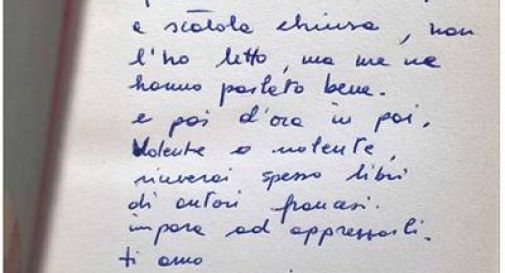 a scatola chiusa, non
l'ho letto, ma me ne
hanno parlato bene.
e poi d'ora in poi,
Volente o nolente,
riceverai spesso libri
di autori francesi.
impara ad apprezzarli.
ti amo